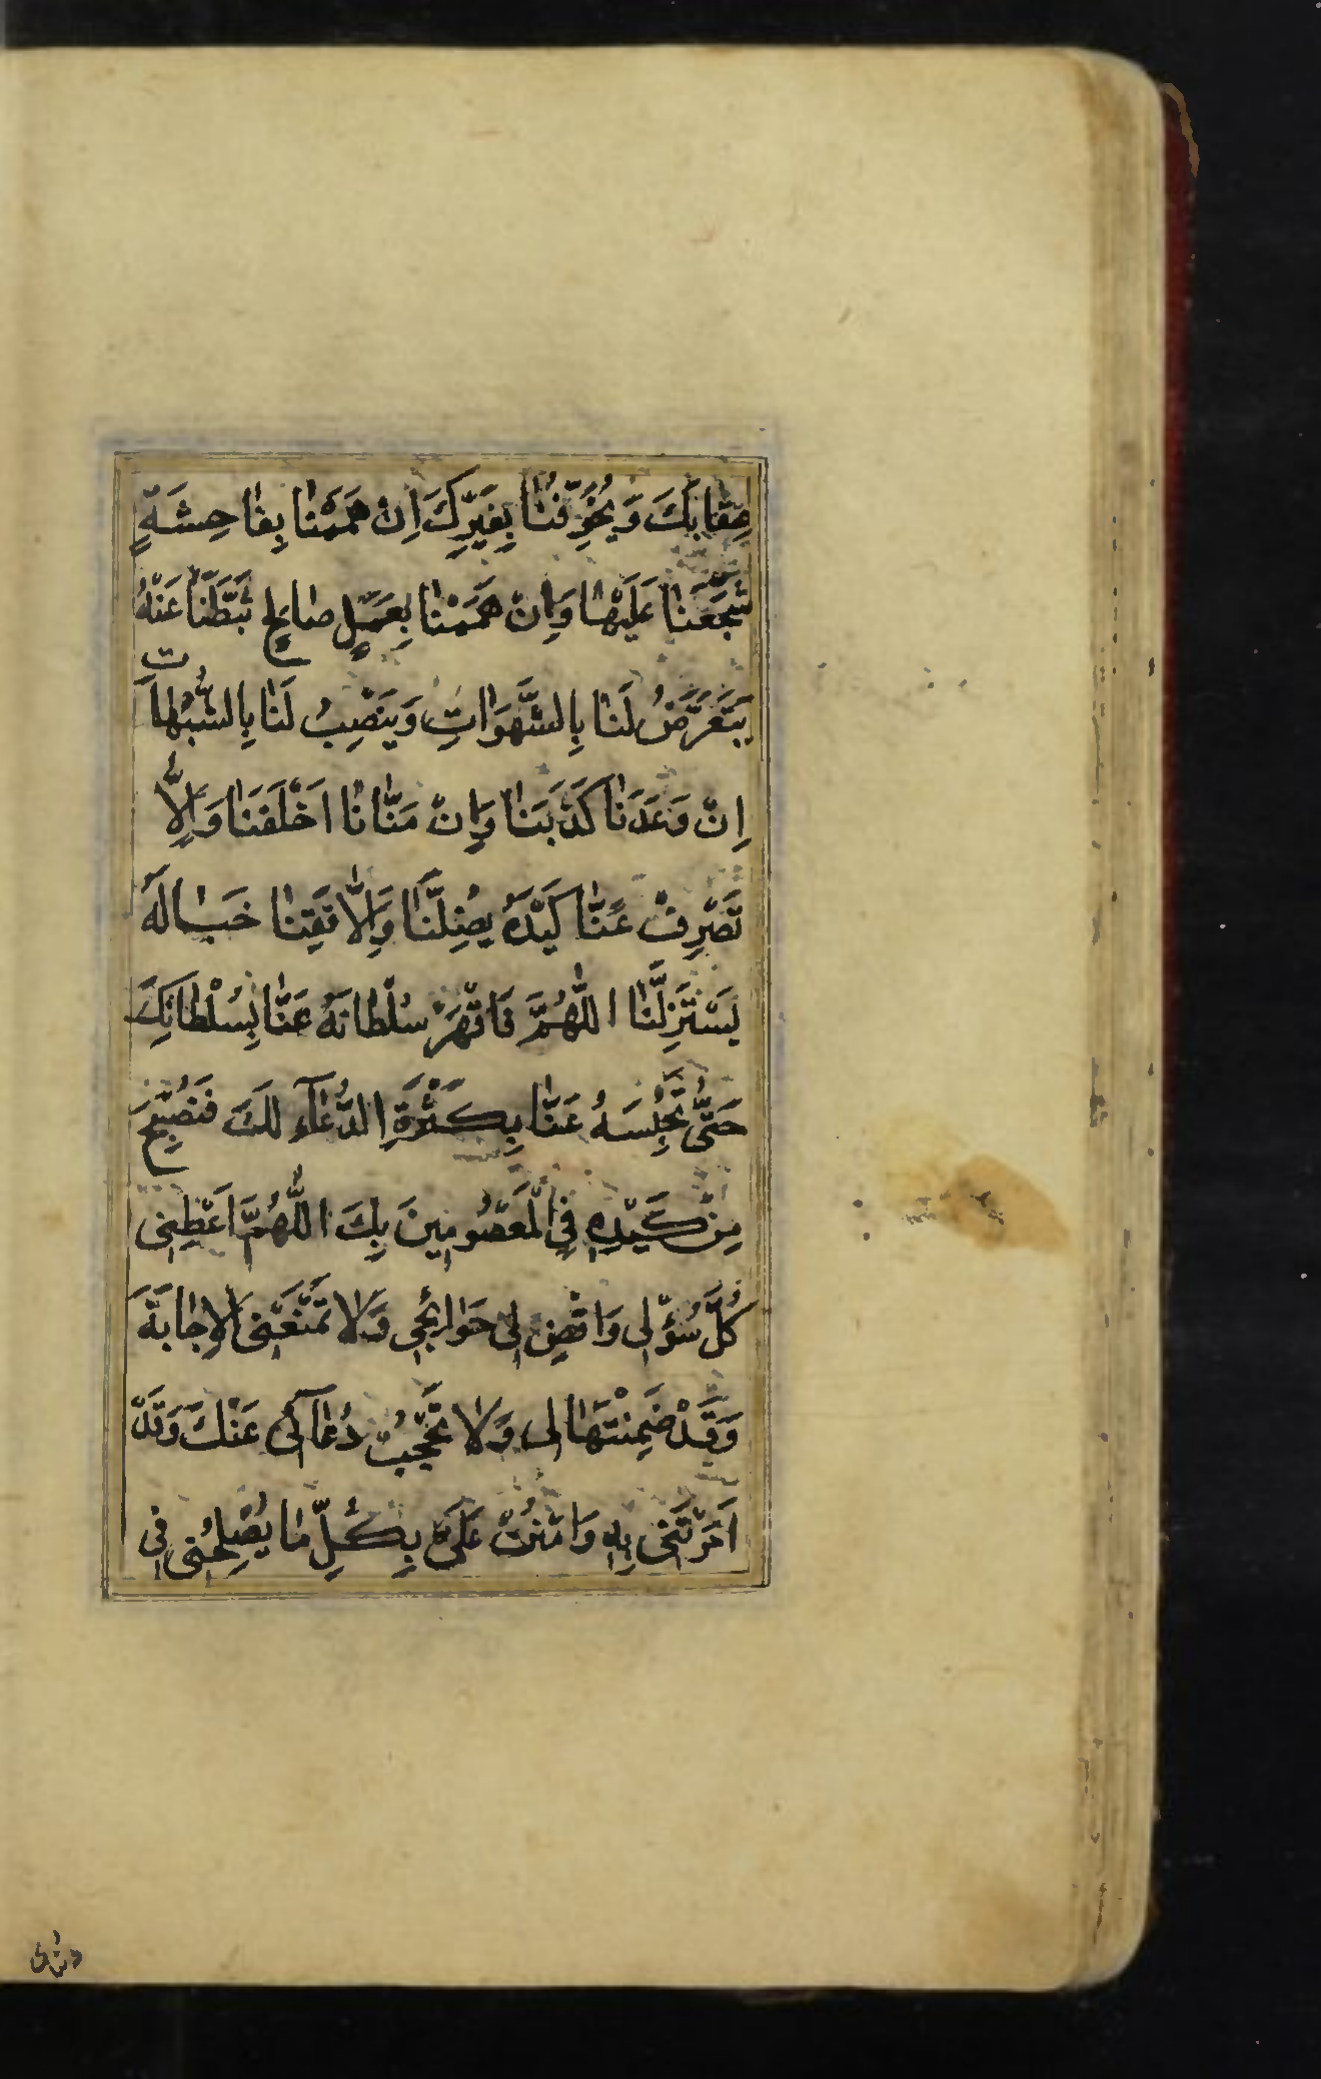 عِقٰابَكَ وَ يُخَوِّفُنٰا بِغَيْرِكَ اِنْ هَمَمْنٰا بِفٰاحِشَةٍ
شَجَّعَنٰا عَلَيْهٰا وَاِنْ هَمَمْنٰا بِعَمَلٍ صٰالِحٍ ثَبَّطَنٰا عَنْهُ
يَتَعَرَّضُ لَنٰا بِالشَّهَوٰاتِ وَيَنْصِبُ لَنٰا بِالشُّبُهٰاتِ
اِنْ وَعَدَنٰا كَذَبَنٰا وَاِنْ مَنّٰانٰا اَخْلَفَنٰا وَاِلّٰا
تَصْرِفْ عَنّٰا كَيْدَهُ يُضِلَّنٰا وَاِلّٰا تَقِنٰا خَبٰالَهُ
يَسْتَزِلَّنٰا اللّٰهُمَّ فَاقْهَرْ سُلْطٰانَهُ عَنّٰا بِسُلْطٰانِكَ
حَتّٰى تَحْبِسَهُ عَنّٰا بِكَثْرَةِ الدُّعٰآءِ لَكَ فَنُصْبِحَ
مِنْ كَيْدِهِ فِى الْمَعْصُومِينَ بِكَ اللّٰهُمَّ اَعْطِنِى
كُلَّ سُؤْلِى وَاقْضِ لِى حَوٰائِجِى وَلٰا تَمْنَعْنِى الْاِجٰابَةَ
وَقَدْ ضَمِنْتَهٰا لِى وَلٰا تَحْجُبْ دُعٰآئِى عَنْكَ وَقَدْ
اَمَرْتَنِى بِهِ وَامْنُنْ عَلَىَّ بِكُلِّ مٰا يُصْلِحُنِى فِى
دنياى